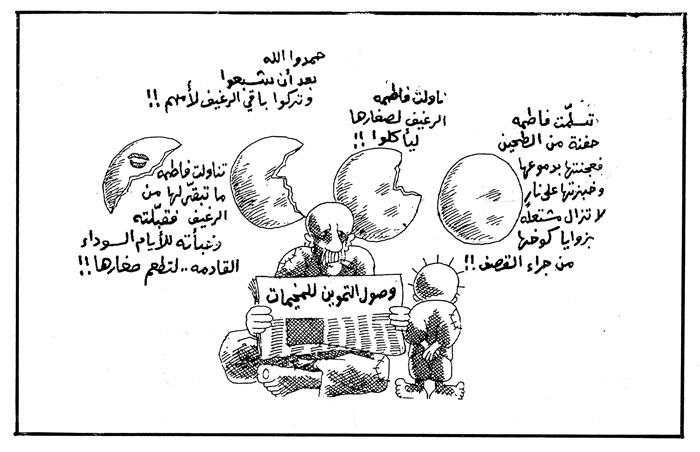 تسلّمت فاطمه
حفنة من الطحين
فعجنتها بدموعها
وخبزتها على نارٍ
لا تزال مشتعلة
بزوايا كوخها
من جراء القصف !!
ناولت فاطمه
الرغيف لصغارها
ليأكلوا !!
حمدوا الله
بعد أن شبعوا
وتركوا باقي الرغيف لأمهم !!
تناولت فاطمه
ما تبقّى لها من
الرغيف فقبّلته
وخبأته للأيام السوداء
القادمه .. لتطعم صغارها !!
وصول التموين للمخيمات